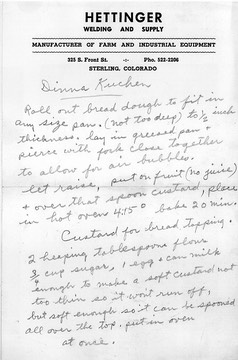 HETTINGER
WELDING AND SUPPLY
MANUFACTURER OF FARM AND INDUSTRIAL EQUIPMENT
325 S. Front St. -:- Pho. 522-2206
STERLING, COLORADO
Dinna Kuchen
Roll out bread dough to fit in
any size pan. (not too deep) to ½ inch
thickness. lay in greased pan +
pierce with fork close together
to allow for air bubbles.
let raise, put on fruit (no juice)
+ over that spoon custard, place
in hot oven 415° bake 20 min.
Custard for bread topping.
2 heaping tablespoons flour
cup sugar, 1 egg + can milk
enough to make a soft custard not
too thin so it won't run off,
but soft enough so it can be spooned
all over the top. put in oven
at once.